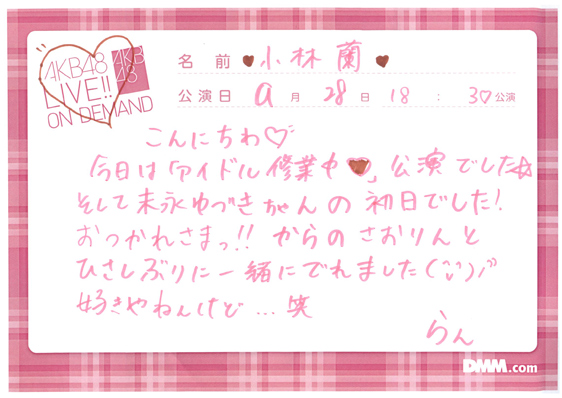 AKB48
LIVE!!
ON DEMAND
AKB
48
名前 ♥小林 蘭♥
公演日 9月28日 18:30♡公演
こんにちわ♡
今日は「アイドル修業中♥」公演でした☆
そして末永ゆづきちゃんの初日でした!
おつかれさまっ!! からのさおりんと
ひさしぶりに一緒にでれました(¨)ノ"
好きやねんけど...笑
らん
DMM.com